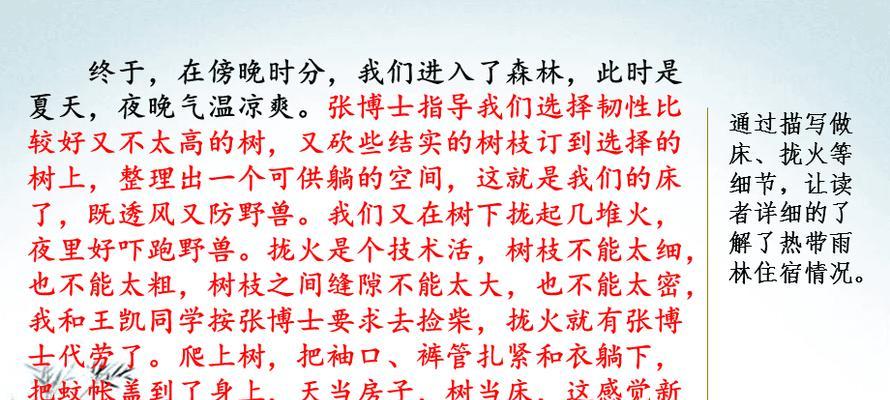 终于，在傍晚时分，我们进入了森林，此时是
夏天，夜晚气温凉爽。张博士指导我们选择韧性比
较好又不太高的树，又砍些结实的树枝订到选择的
树上，整理出一个可供躺的空间，这就是我们的床
了，既透风又防野兽。我们又在树下拢起几堆火，
夜里好吓跑野兽。拢火是个技术活，树枝不能太细，
也不能太粗，树枝之间缝隙不能太大，也不能太密，
我和王凯同学按张博士要求去捡柴，拢火就有张博
士代劳了。爬上树，把袖口、裤管扎紧和衣躺下，
把蚊帐盖到了身上，天当房子，树当床，这感觉新
通过描写做
床、拢火等
细节，让读
者详细的了
解了热带雨
林住宿情况。